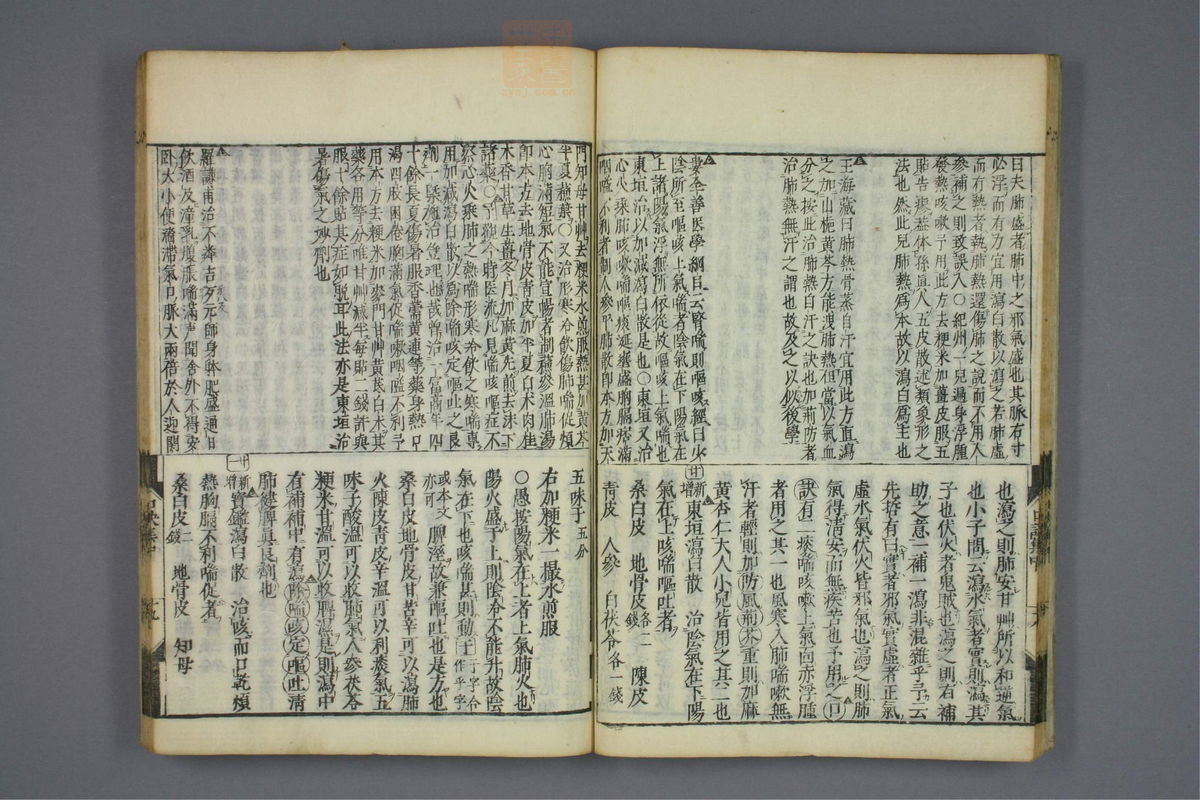 曰夫肺盛者肺中之邪氣盛也其脈右寸
必浮而有力宜用瀉白散以瀉之若肺虛
而有熱者執肺熱還傷肺之說而不用人
參補之則致誤人○紀州一兒遍身浮腫
發熱咳嗽予用此方去粳米加薑皮服五
貼告瘥蓋体係直人五皮散述類象形之
法也然此兒肺熱爲本故以瀉白爲主也
王海藏曰肺熱骨蒸自汗宜用此方直瀉
之加山梔黄芩方能洩肺熱但當以氣血
分之按此治肺熱自汗之訣也加荊防者
治肺熱無汗之謂也故及之以似後學
婁全善医學綱目云腎喘則嘔咳經曰少
陰所至嘔咳上氣喘者陰氣在下陽氣在
上諸陽氣浮無所依從故嘔咳上氣喘也
東垣治以加減瀉白散是也○東垣又治
心火乗肺咳嗽喘嘔痰延壅盛胸膈痞滿
咽嗌不利者制人參平肺散即本方加天
也瀉之則肺安甘艸所以和逆氣
也小子問云瀉水氣者實則瀉其
子也伏火者鬼賊也瀉之則有補
助之意一補一瀉非混雜乎予云
先哲有曰實者邪氣實虛者正氣
虛水氣伏火皆邪氣也瀉之則肺
氣得清安而無疾苦也予用之口
訣有二痰喘嗽上氣面赤浮腫
者用之其一也風寒入肺喘嗽無
汗者輕則加防風荊芥重則加麻
黄杏仁大人小兒皆用之其二也
新增東垣瀉白散 治陰氣在下陽
氣在上咳喘嘔吐者
桑白皮 地骨皮各二錢 陳皮
青皮 人參 白茯苓各一錢
門知母甘艸去粳米水煎服熱甚加黄芩
半夏蘓葉○又治形寒冷飲傷肺喘促煩
心胸滿短氣不能宣暢者制蘓參溫肺湯
即本方去地骨皮青皮加半夏白术肉桂
木香甘草生薑冬月加麻黄先煎去沫下
諸藥○予觀今時医流凡見喘咳嘔症不
察心火乗肺之熱喘形寒冷飲之寒喘專
用加減瀉白散以為除喘咳定嘔吐之良
劑一槩施治豈理也哉曽治一富商年四
十餘長夏傷暑服香薷黄連等藥身熱口
渴四肢困倦胸滿氣促喘嗽咽嗌不利予
用本方去粳米加麥門甘艸黄芪白术其
藥各用等分唯甘艸減半每貼二錢許與
服十餘貼其症如脱耳此法亦是東垣治
暑傷氣之妙劑也
羅謙甫治不粦吉歹元師身体肥盛過日
飲酒及潼乳腹脹喘滿声聞舍外不得安
卧大小便濇滯氣口脉大兩倍於人迎関
五味子五分
右加粳米一撮水煎服
○愚按陽氣在上者上氣肺火也
陽火盛于上則陰分不能升故陰
氣在下也咳喘甚則動
或本文脾溼故兼嘔吐也是方也
桑白皮地骨皮甘苦辛可以瀉肺
火陳皮靑皮辛溫可以利痰氣五
味子酸溫可以收肺氣人參茯苓
粳米甘溫可以收脾濕是則瀉中
有補補中有瀉除喘咳定嘔吐淸
肺健脾眞良劑也
新增寶鑑瀉白散 治咳而口乾煩
熱胸膈不利喘促者
桑白皮二錢 地骨皮 知母